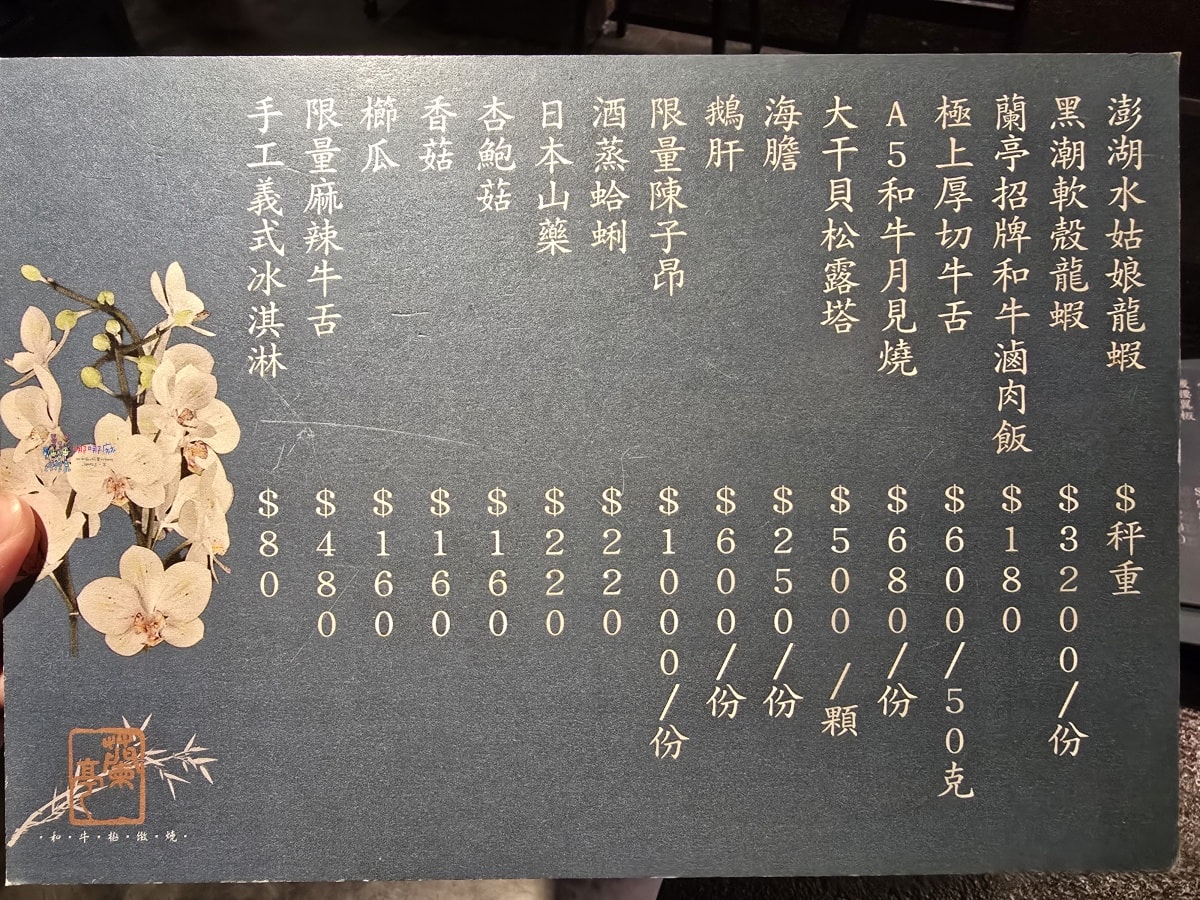 澎湖水姑娘龍蝦 $秤重
黑潮軟殼龍蝦 $3200/份
蘭亭招牌和牛滷肉飯 $180
極上厚切牛舌 $600/50克
A5和牛月見燒 $680/份
大干貝松露塔 $500/顆
海膽 $250/份
鵝肝 $600/份
限量陳子昂 $1000/份
酒蒸蛤蜊 $220
日本山藥 $220
杏鮑菇 $160
香菇 $160
櫛瓜 $160
限量麻辣牛舌 $480
手工義式冰淇淋 $80
蘭亭